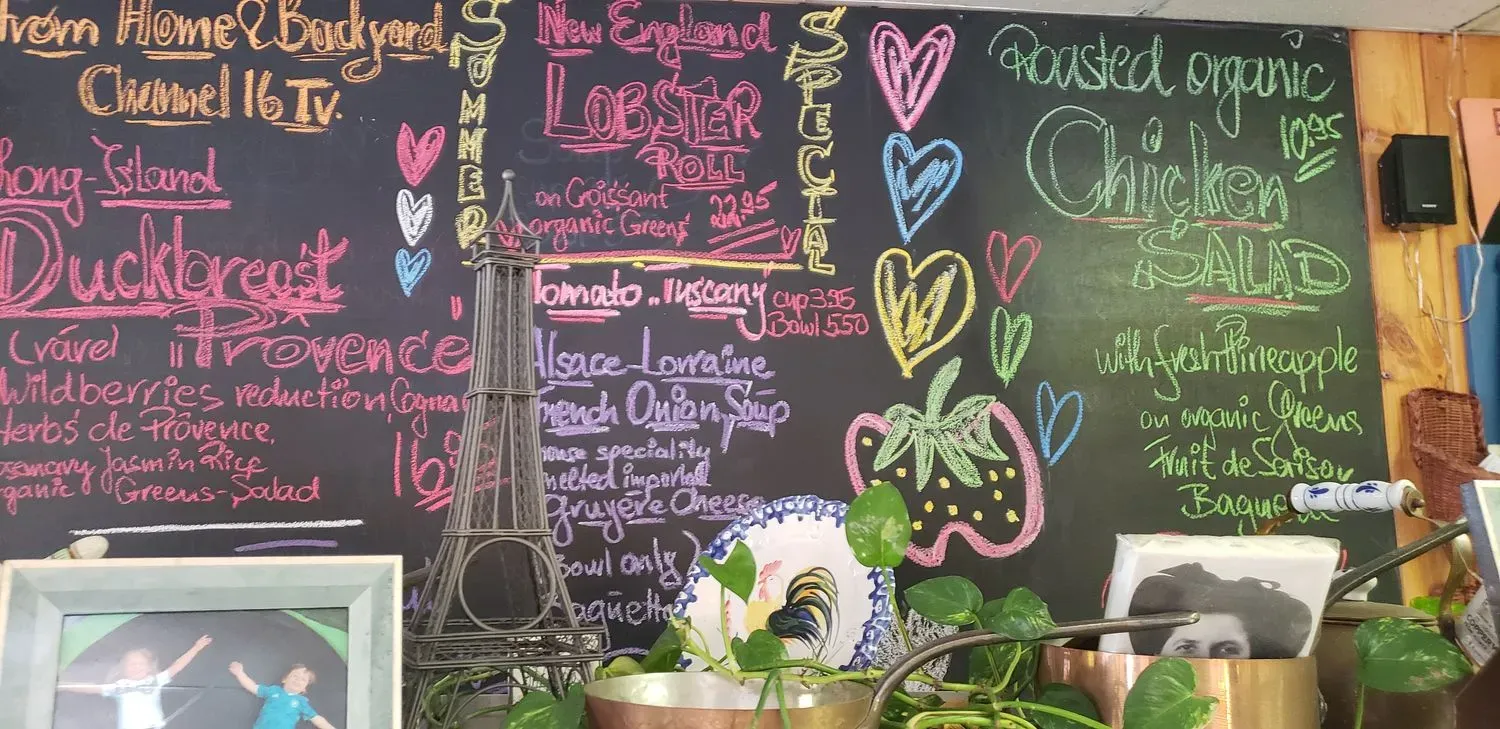 from Home & Backyard
Channel 16 Tv.
Long-Island
Duckbreast
"Provence
Wildberries reduction Cognac
Herbs de Provence,
Jasmin Rice
Greens-Salad
16
SUMMER
New England
LOBSTER
ROLL
on Croissant
organic Greens 22.95
SPECIAL
Tomato..Tuscany cup 3.95
Bowl 550
Alsace-Lorraine
French Onion Soup
house speciality
melted imported
Gruyère Cheese
Bowl only)
Baguette
Roasted organic
Chicken 10.95
SALAD
with fresh Pineapple
on organic Greens
Fruit de Saison
Baguette